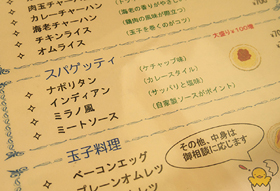 肉玉チャーハン
カレーチャーハン
海老チャーハン
チキンライス
オムライス
(海老の香りが
(鶏肉の風味が際立つ)
(玉子を巻くのがコツ)
大盛り±100増
スパゲッティ
ナポリタン (ケチャップ味)
インディアン (カレースタイル)
ミラノ風 (サッパリと塩味)
ミートソース (自家製ソースがポイント)
玉子料理
ベーコンエッグ
プレーンオムレツ
その他、中身は
御相談に応じます